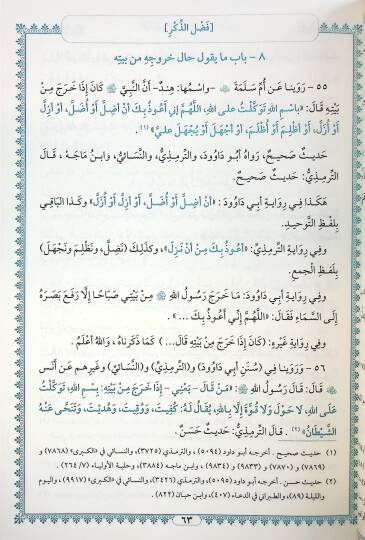 [فَضْل الذِّكْر]
٨ - باب ما يقول حال خروجه من بيته
٥٥ - رَوَينا عَن أُمِّ سَلَمَةَ ﵂ -واسْمُها: هِندٌ- أَنَّ النَّبِيَّ ﷺ كَانَ إِذَا خَرَجَ مِنْ
بَيْتِهِ قَالَ: «بِاسْمِ اللهِ تَوَكَّلْتُ على اللهِ، اللَّهُمَّ إِنِّي أَعُوذُ بِكَ أَنْ أَضِلَّ أَوْ أُضَلَّ، أَوْ أَزِلَّ
أَوْ أُزَلَّ، أَوْ أَظْلِمَ أَوْ أُظْلَمَ، أَوْ أَجْهَلَ أَوْ يُجْهَلَ عليَّ» (١).
حَديثٌ صَحيحٌ، رَوَاهُ أَبُو دَاوُودَ، وَالتِّرمِذِيُّ، وَالنَّسَائِيُّ، وَابنُ مَاجَهْ، قَالَ
التِّرمِذِيُّ: حَديثٌ صَحيحٌ.
هَكَذَا فِي رِوَايَةِ أَبِي دَاوُودَ: «أَنْ أَضِلَّ أَوْ أُضَلَّ، أَوْ أَزِلَّ أَوْ أُزَلَّ» وكَذا البَاقِي
بِلَفْظِ التَّوحِيدِ.
وفِي رِوَايَةِ التِّرمِذِيِّ: «أَعُوذُ بِكَ مِنْ أَنْ نَزِلَّ»، وكَذلِكَ (نَضِلَّ، ونَظْلِمَ ونَجْهَلَ)
بِلَفْظِ الجَمعِ.
وفِي رِوَايَةِ أَبِي دَاوُودَ: مَا خَرَجَ رَسُولُ اللهِ ﷺ مِنْ بَيْتِي صَبَاحًا إِلَّا رَفَعَ بَصَرَهُ
إِلَى السَّمَاءِ فَقَالَ: «اللَّهُمَّ إِنِّي أَعُوذُ بِكَ ...» .
وفِي رِوَايَةِ غَيْرِهِ: (كَانَ إِذَا خَرَجَ مِنْ بَيْتِهِ قَالَ...) كَمَا ذَكَرنَاهُ، وَاللهُ أَعْلَمُ.
٥٦ - وَرَوَينَا فِي (سُنَنِ أَبِي دَاوُودَ) و(التِّرمِذِيِّ) و(النَّسَائِيِّ) وَغَيرِهِم عَنْ أَنَسٍ
قَالَ: قَالَ رَسُولُ اللهِ ﷺ: «مَنْ قَالَ - يَعْنِي - إِذَا خَرَجَ مِنْ بَيْتِهِ: بِسْمِ اللهِ، تَوَكَّلْتُ
عَلَى اللهِ، لا حَوْلَ وَلَا قُوَّةَ إِلَّا بِاللهِ، يُقَالُ لَهُ: كُفِيتَ، وَوُقِيتَ، وَهُدِيتَ، وَتَنَحَّى عَنْهُ
الشَّيْطَانُ» (٢). قَالَ التِّرمِذِيُّ: حَديثٌ حَسَنٌ.
(١) حديث صحيح. أخرجه أبو داود (٥٠٩٤)، والترمذي (٣٧٢٥)، والنسائي في «الكبرى» (٧٨٦٨) و
(٧٨٦٩) و (٧٨٧٠) و (٩٨٣٣) و (٩٨٣٤)، وابن ماجه (٣٨٨٤)، وحلية الأولياء (٧ /٢٦٤).
(٢) حديث حسن. أخرجه أبو داود (٥٠٩٥)، والترمذي (٣٤٢٦)، والنسائي في «الكبرى» (٩٩١٧)، واليوم
والليلة (٨٩)، والطبراني في الدعاء (٤٠٧)، وابن حبان (٨٢٢)
٦٣